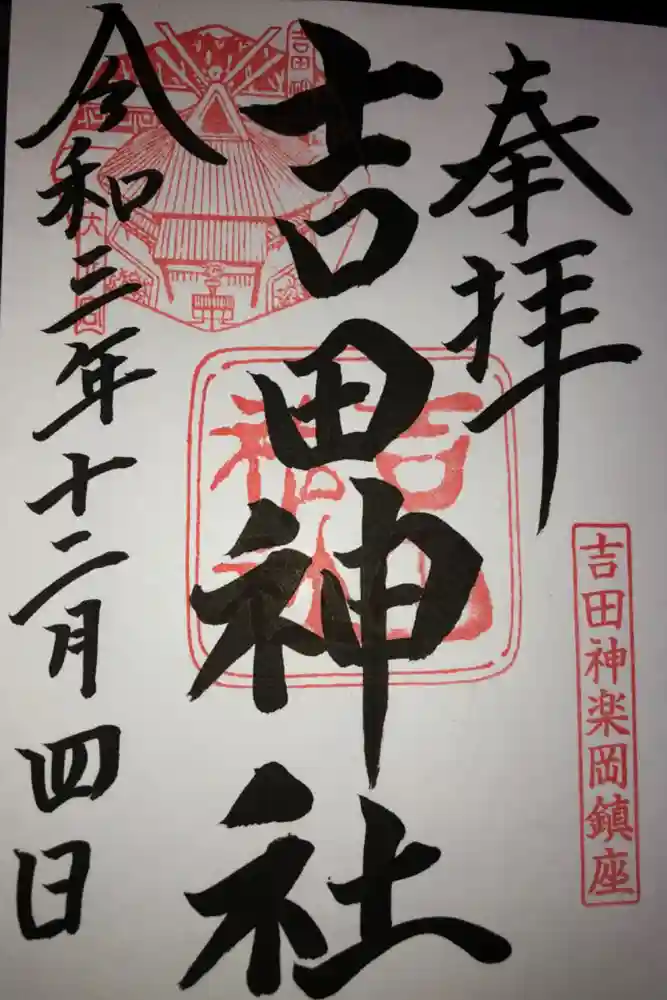 奉拝
吉田神楽岡鎮座
吉田神社
令和三年十二月四日